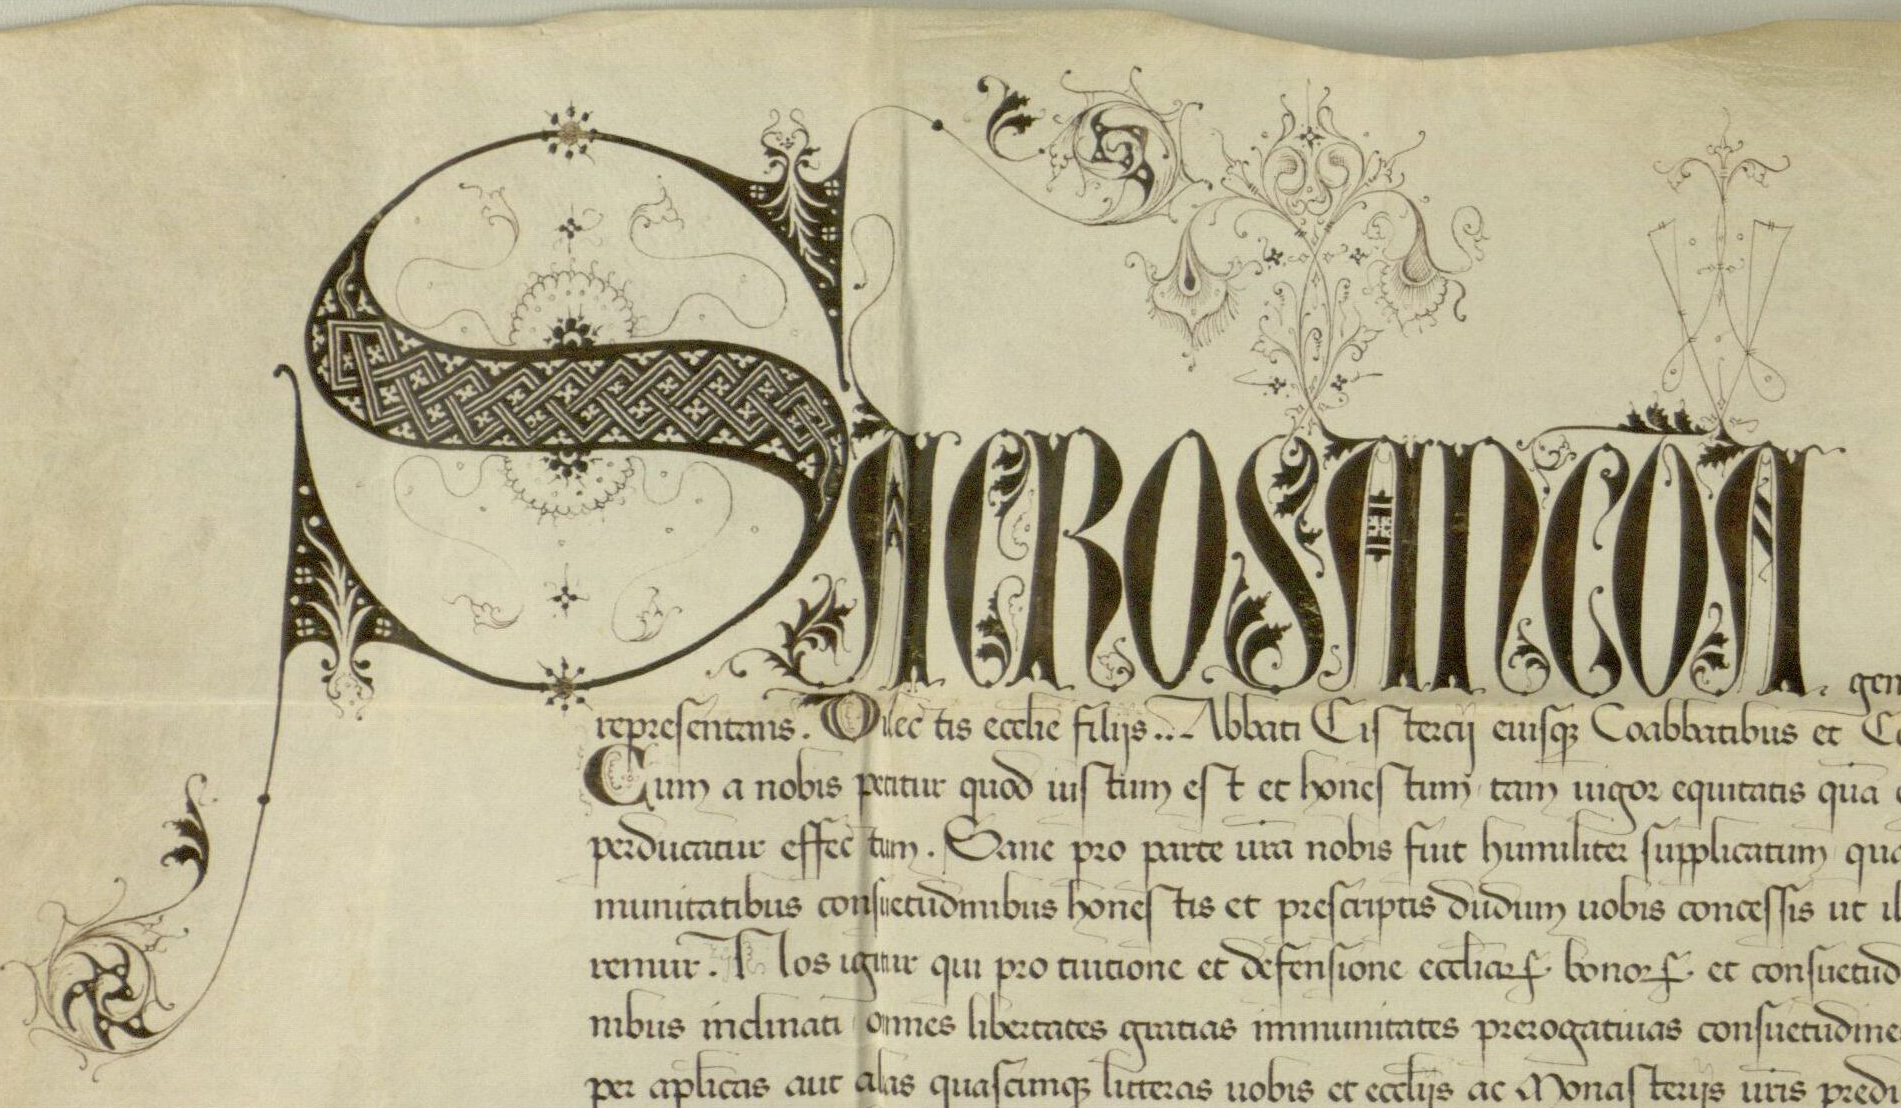 SACROSANCTA. gen
representans. Dilectis eccl̄ie filijs.. Abbati Cistercij eiusq̄ Coabbatibus et
Cum a nobis petitur quod iustum est et honestum tam uigor equitatis quā
perducatur effectum. Sane pro parte ūra nobis fuit humiliter supplicatum
munitatibus consuetudinibus honestis et prescriptis dudum uobis concessis ut
remur. Nos igitur qui pro tuitione et defensione eccl̄iaꝝ bonoꝝ et consuetud
nibus inclinati omnes libertates gratias immunitates prerogatiuas consuetudine
per ap̄licas aut alias quascunq̄ litteras uobis et eccl̄ijs ac Monasterijs ūris pred